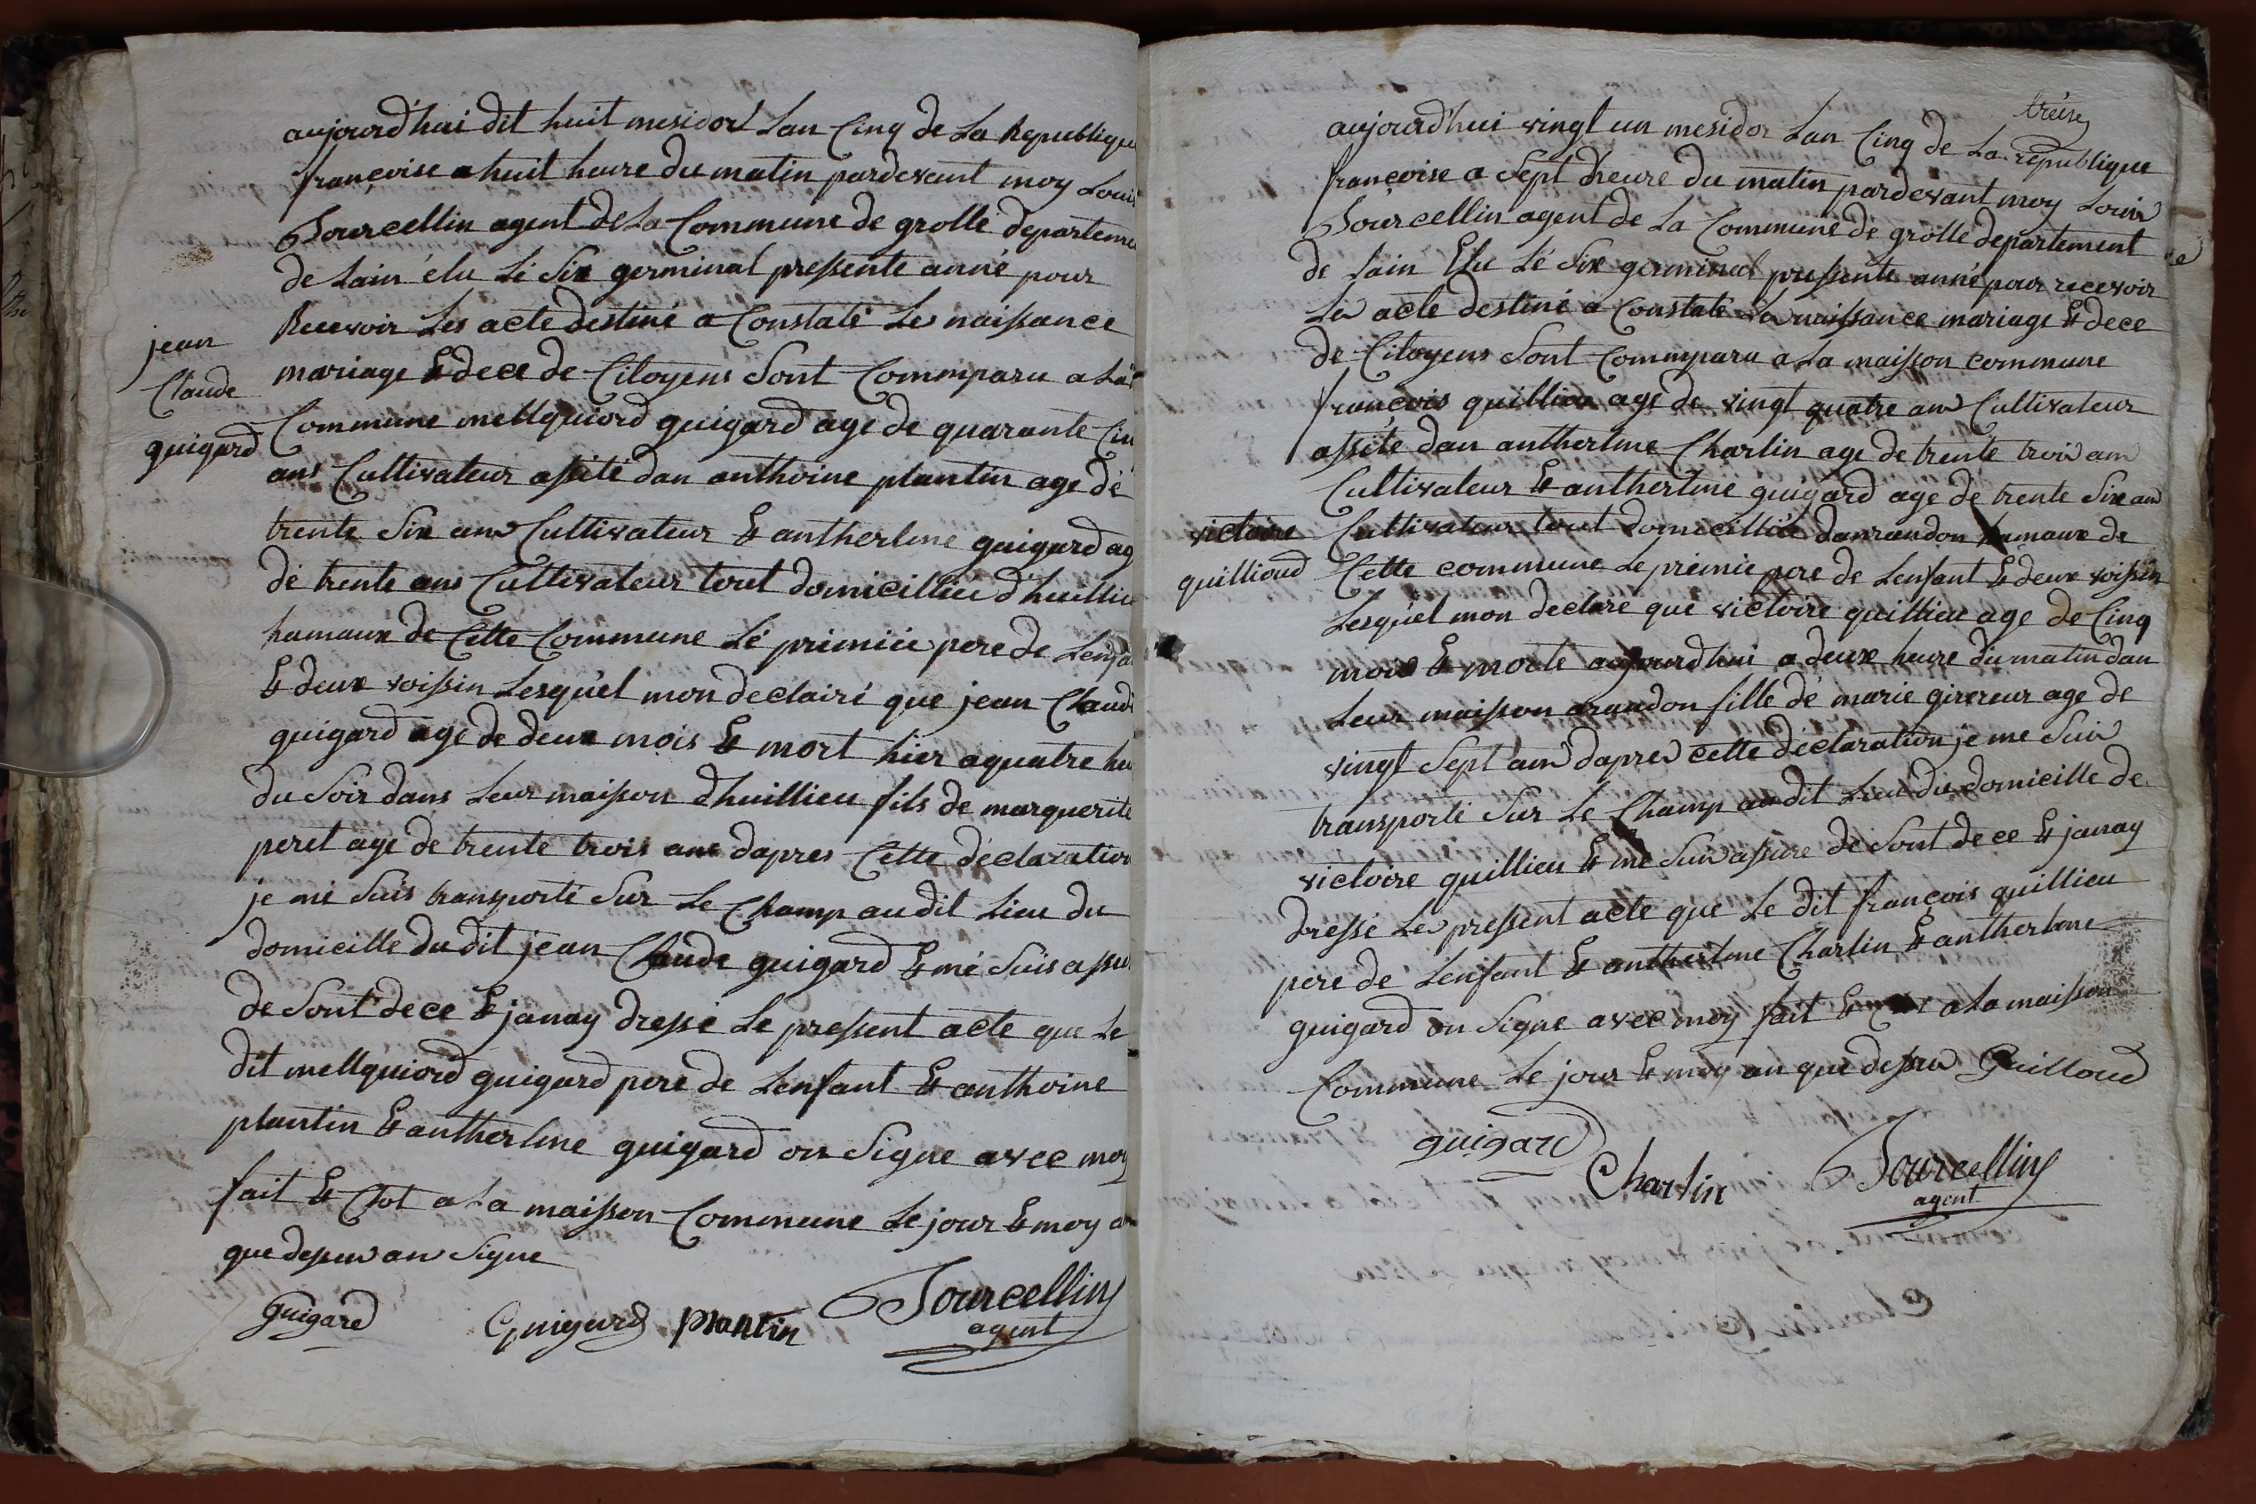 aujourd'hui dit huit mesidor Lan Cinq de La Republique
françoise a huit heure du matin pardevant moy Loui
Sourcellin agent de La Commune de grolle departeme
de Lain élu Lé Six germinal pressente anné pour
Recevoir Les acte destiné a Constaté Les naissance
mariage & dece de Citoyens Sont Commparu a La
Commune mellquiord guigard age de quarante Cin
ans Cultivateur assité dan anthoine plantin age dé
trente Six ans Cultivateur & antherlme guigard ag
dé trente ans Cultivateur tout domicilliéé d'huillieu
hamaux de Cette Commune Lé prémiée pere de Lenfa
& deux voissin Lesquél mon declairé que jean Claude
guigard agé de deux mois & mort hier aquatre heu
du Soir dans Leur maison d'huillieu fils de marguerite
peret agé dé trente trois ans dapres Cette déclaration
je mé Suis transporté Sur Le Champ au dit Lieu du
domicille du dit jean Claude guigard & mé Suis assu
de Sont dece & janay dressé Le pressent acte que Le
dit mellquiord guigard pere de Lenfant & anthoine
plantin & antherlme guigard on Signe avec moy
fait & Clot a La maisson Commune Le jour & moy an
que dessu on Signe
Guigard Guigard plantin Sourcellin
agent
jean
Claude
guigard
treize
aujourd'hui vingt un mesidor Lan Cinq de La république
françoise a Sept d'heure du matin pardevant moy Louis
Sourcellin agent de La Commune de grolle departement
de Lain Elu Lé Six germinal pressente anné pour recevoir
Les acte destiné a Constaté La naissance mariage & dece
de Citoyens Sont Commparu a La maisson commune
françois quillieu agé de vingt quatre ans Cultivateur
assité dan antherlme Charlin age de trente trois ans
Cultivateur & antherlme guigard age dé trente Six ans
Cultivateur tout domicilliéé danrandon hamaux de
Cette commune Le prémié pere de Lenfant & deux voissin
Lesquél mon declaré que victoire quillieu age de Cinq
mois & morte aujourdhui a deux heure du matin dan
Leur maisson arandon fille dé marie girereur age de
vingt Sept ans dapres cette déclaration je me Suis
transporté Sur Le Champ au dit Lieu du domicille de
victoire quillieu & me Suis assuré dé Sont dece & janay
dressé Les pressent acte que Le dit françois quillieu
pere de Lenfant & antherlme Charlin & antherlme
guigard on Signe avec moy fait & Clot a La maisson
Commune Le jour & moy an que dessu Guilloud
guigard Charlin Sourcellin
agent
victoire
quillioud